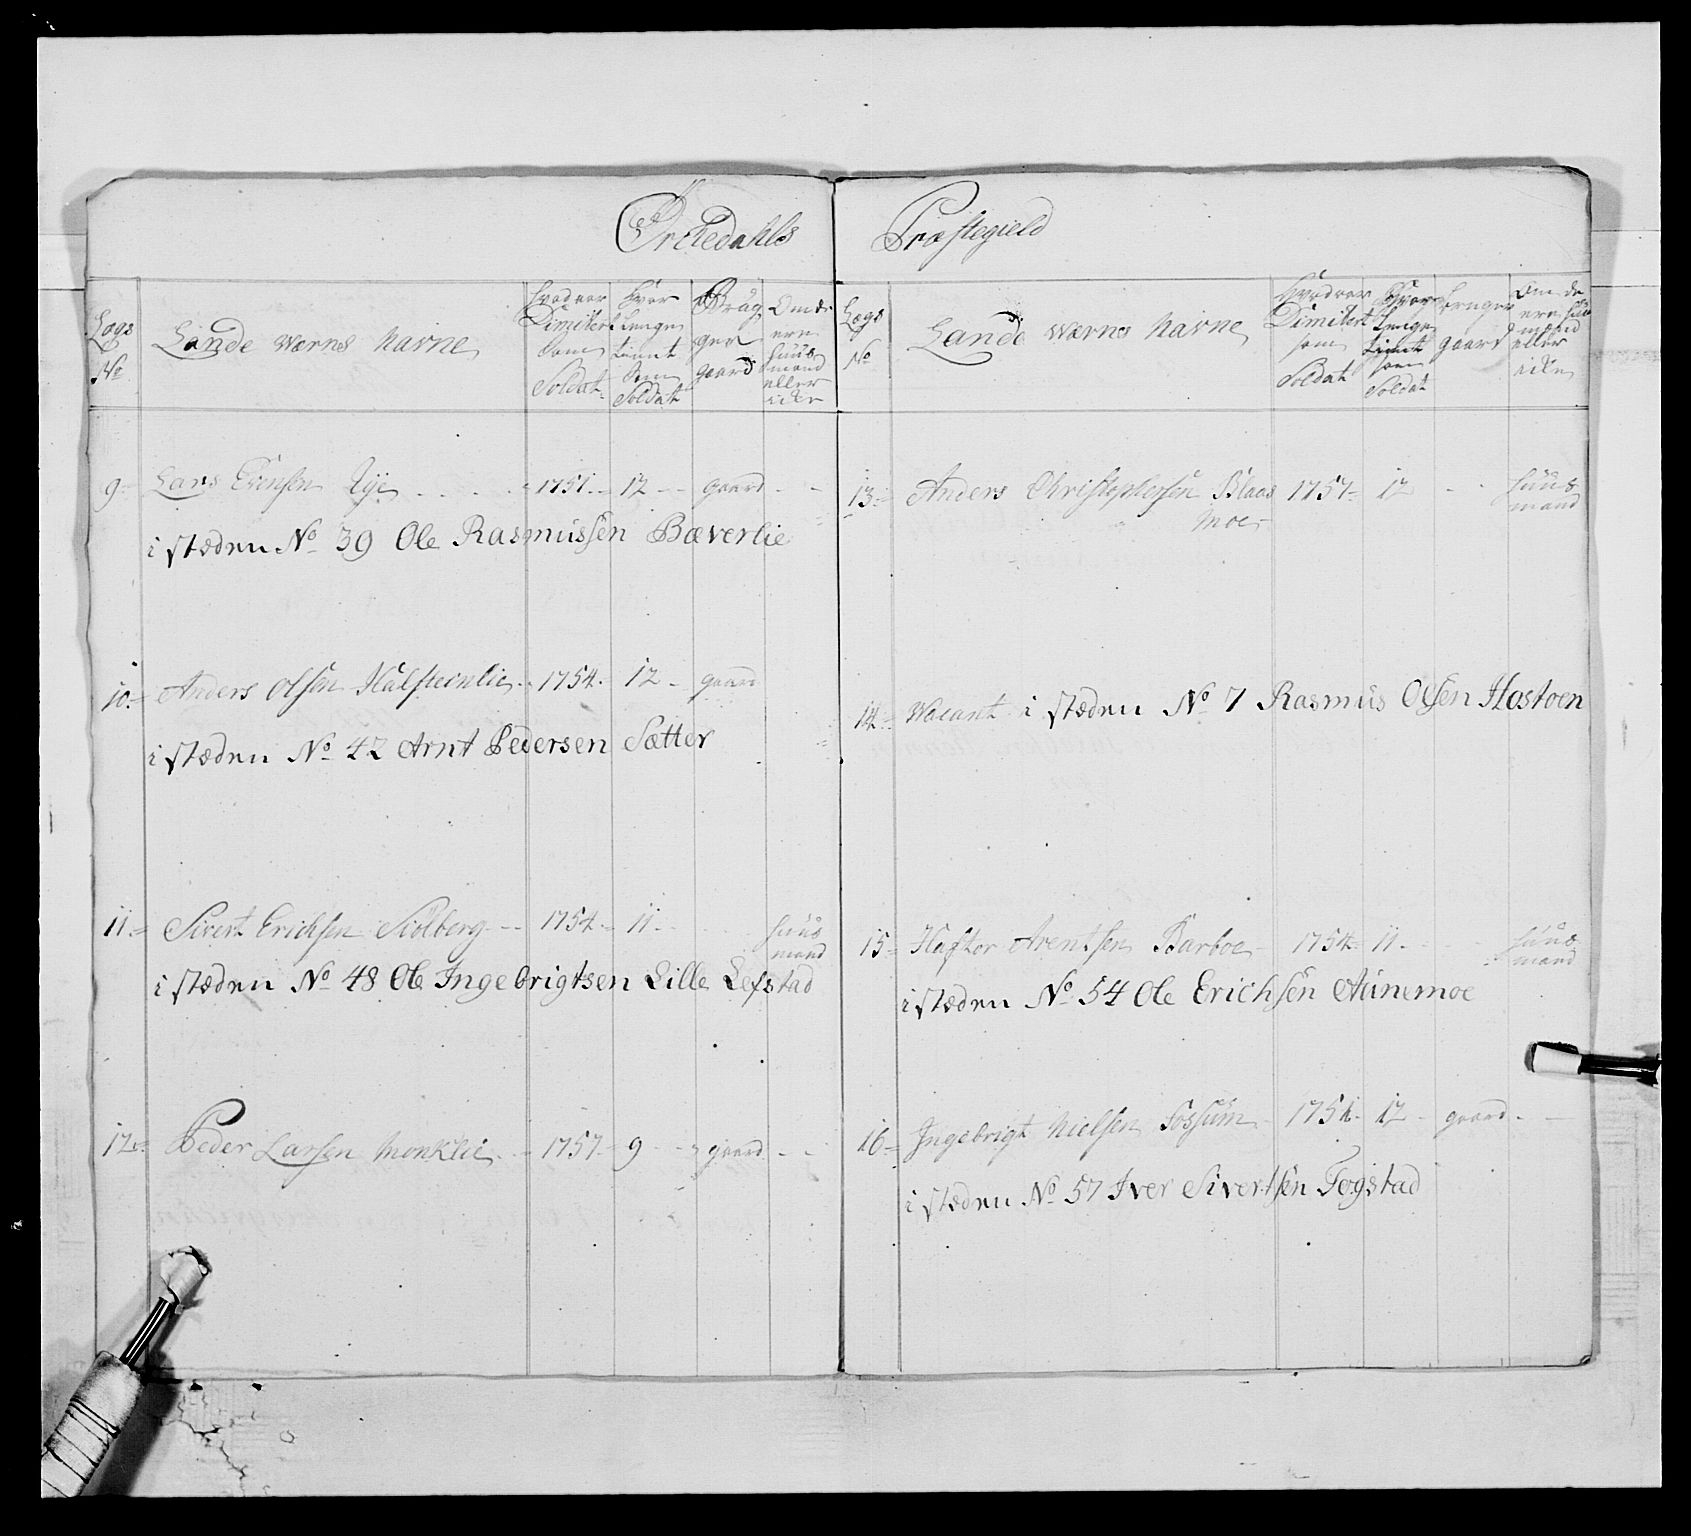 Orchedahls Præstegield
Lægs No
Lande Wærnes Navne
Hvad aar Dimitert som Soldat
Hvor Lenge tient som Soldat
Brug ger gaard
Om de ere huus mand eller icke
9 Lars Evensen Aje 1751 12 gaard
i stæden No 39 Ole Rasmussen Bæverlie
10 Anders Olsen Halsteinlie 1754 12 gaard
i stæden No 42 Arnt Pedersen Sætter
11 Sivert Erichsen Siölberg 1754 11 huus mand
i stæden No 48 Ole Ingebrigtsen Lille Lefstad
12 Peder Larsen Monklie 1757 9 gaard
Lægs No
Lande Wærnes Navne
Hvad aar Dimitert som Soldat
Hvor Lenge tient som Soldat
bruger gaard
Om de ere huus mænd eller icke
13 Anders Christophersen Blaas 1757 12 huus mand
moe
14 Vacant i stæden No 7 Rasmus Olsen Hostoen
15 Haftor Arentsen Barboe 1754 11 huus mand
i stæden No 54 Ole Erichsen Aunemoe
16 Ingebrigt Nielsen Fossum 1751 12 gaard
i stæden No 57 Iver Sivertsen Fogstad